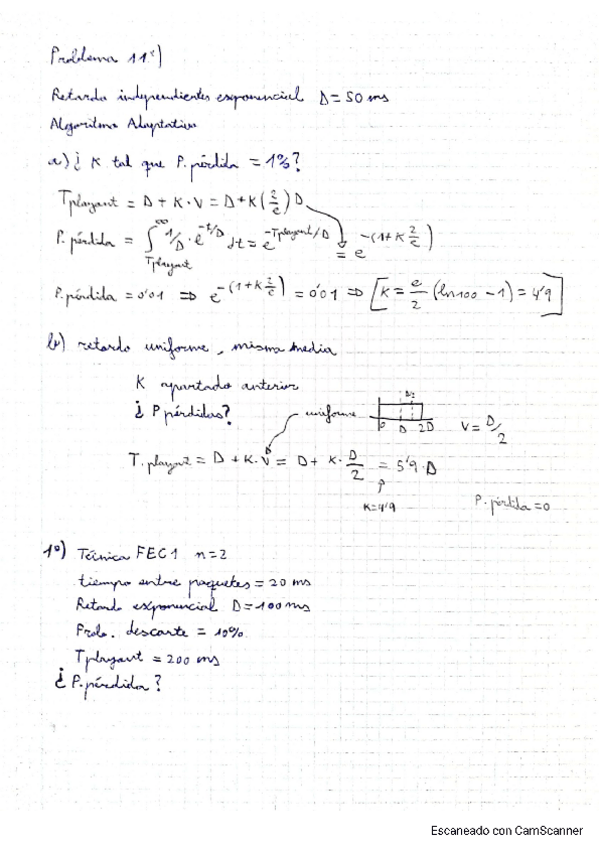 Problema 11º)
Retardo independientes exponencial D = 50 ms
Algoritmo Adaptativo
a) ¿ K tal que P. pérdida = 1%?
Tplayout = D + K·V = D + K(2/e) D
P. pérdida = ∫_Tplayout^∞ 1/D · e^(-t/D) dt = e^(-Tplayout/D) = e^(-(1+K 2/e))
P. pérdida = 0'01 ⇒ e^(-(1+K 2/e)) = 0'01 ⇒ [K = e/2 (ln100 - 1) = 4'9]
b) retardo uniforme, misma media
K apartado anterior
¿ P pérdidas? uniforme 0 D 2D V = D/2
T. playout = D + K·V = D + K· D/2 = 5'9·D
K=4'9 P. pérdida = 0
1º) Técnica FEC1 n=2
tiempo entre paquetes = 20 ms
Retardo exponencial D = 100 ms
Prob. descarte = 10%
Tplayout = 200 ms
¿ P. pérdida?
Escaneado con CamScanner